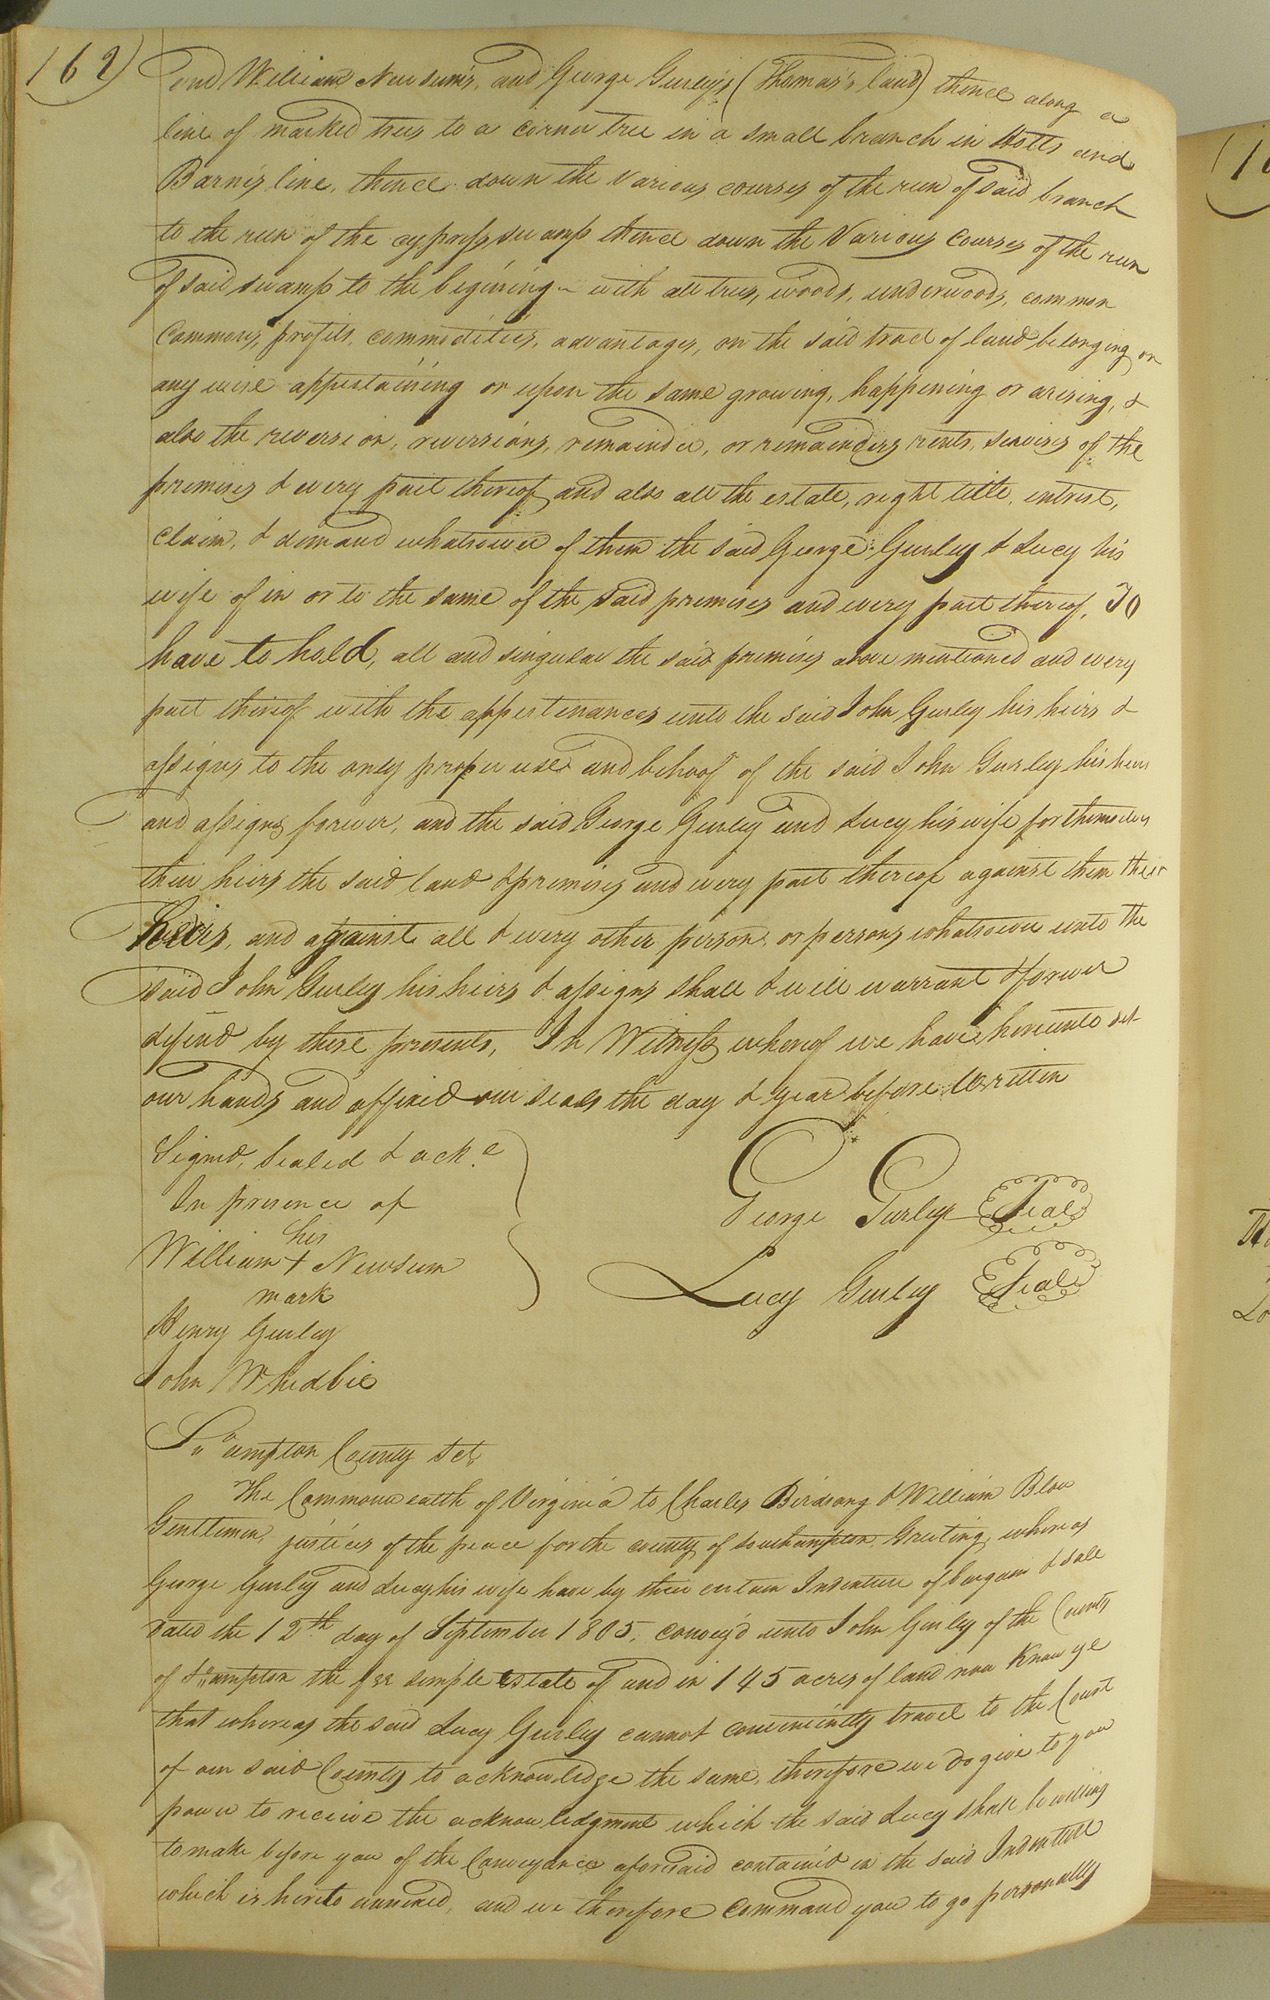 162)
and William Newsum's, and George Gurley's (Thomas's land) thence along a
line of marked trees to a corner tree in a small branch in Holts and
Barns's line, thence down the various courses of the run of said branch
to the run of the cypress swamp thence down the Various Courses of the run
of said swamp to the begining with all trees, woods, underwoods, common
Commons, profits, commodities, advantages, on the said tract of land belonging or
any wise appertaining or upon the same growing, happening or arising, &
also the reversion, reversions, remainder, or remainders rents, servises of the
premises & every part thereof and also all the estate, right title, intrest,
claim, & demand whatsoever of them the said George Gurley & Lucy his
wife of in or to the same of the said premises and every part thereof, To
have to hold, all and singular the said premises above mentioned and every
part thereof with the appertinances unto the said John Gurley his heirs &
assigns to the only proper use and behoof of the said John Gurley his heirs
and assigns forever, and the said George Gurley and Lucy his wife for themselves
their heirs the said land & premises and every part thereof against them their
heirs, and against all & every other person or persons whatsoever unto the
said John Gurley his heirs & assigns shall & will warrant & forever
defend by these presents, In Witness whereof we have hereunto set
our hands and affixed our seals the day & year before Written
Signed, Sealed & ack.e
In presence of
his
William + Newsum
mark
Henry Gurley
John Whedbie
George Gurley Seal
Lucy Gurley Seal
So"ampton County Sct,
The Commonwealth of Virginia to Charles Birdsong & William Blow
Gentlemen, justices of the peace for the county of Southampton, Greeting, whereas
George Gurley and Lucy his wife have by their certain Indenture of bargain & sale
dated the 12th day of September 1805, convey'd unto John Gurley of the County
of So"ampton the fee simple estate of and in 145 acres of land now Know ye
that whereas the said Lucy Gurley cannot conveniently travel to the Court
of our said County to acknowledge the same, therefore we do give to you
power to receive the acknowledgment which the said Lucy shall be willing
to make before you of the Conveyance aforesaid contain'd in the said Indenture
which is hereto annexed, and we therefore command you to go personally